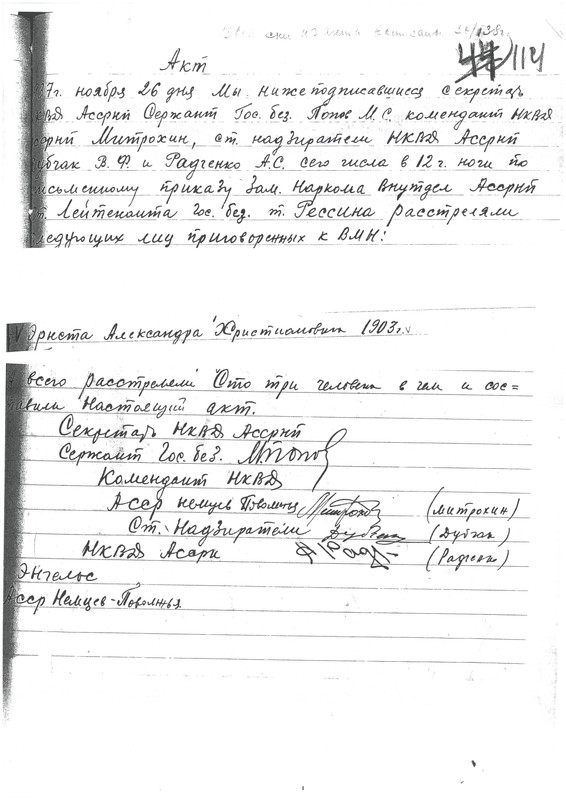 44 114
Акт
7г. ноября 26 дня Мы нижеподписавшиеся секретарь
АССРНП Сержант Гос. без. Попов М.С. комендант НКВД
Митрохин, ст. надзиратели НКВД АССРНП
В.Ф. и Радченко А.С. сего числа в 12 г. ночи по
исьменному приказу Зам. Наркома Внутдел АССРНП
т. Лейтенанта Гос. без. т. Рессина расстреляли
ледующих лиц приговоренных к ВМН:
V Эрнста Александра Христиановича 1903г. v
всего расстреляли Сто три человека в чем и сос=
тавили настоящий акт.
Секретарь НКВД АССРНП
Сержант Гос. без. МПопов
Комендант НКВД
АССР немцев Поволжья (Митрохин)
Ст. Надзиратели (Дубчак)
НКВД АССРН (Радченко)
Энгельс
АССР Немцев-Поволжья.